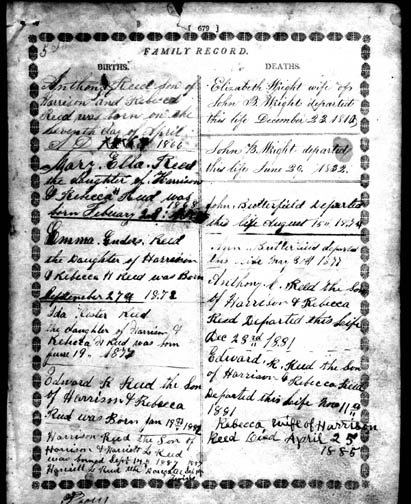 [ 679 ]
FAMILY RECORD.
BIRTHS.
Anthony Reed son of
Harrison and Rebecca
Reed was born on the
seventh day of April
A D 1866
Mary Ella Reed
the daughter of Harrison
& Rebecca Reed was
born Febuary
Emma Enders Reed
the Daughter of Harrison
& Rebecca H Reed was Born
September 27th 1872
Ida Reed
the daughter of Harrison &
Rebecca H Reed was born
june 19 1877
Edward R Reed the son
of Harrison & Rebecca
Reed was Born Jan
Harrison Reed the Son of
Harrison & Harriett L Reed
was borned Sept 1887
Harriett L Reed the
DEATHS.
Elizabeth Wright wife of
John B. Wright departed
this life December 23
John B. Wright departed
this life June 29. 1822.
John Butterfield Departed
this life August 15th
departed
this life
Anthony Reed the Son
of Harrison & Rebecca
Reed Departed this Life
Dec 28rd 1881
Edward. R. Reed the son
of Harrison & Rebecca Reed
Departed this Life Nov 11th
1881
Rebecca wife of Harrison
Reed Died April 25
1885